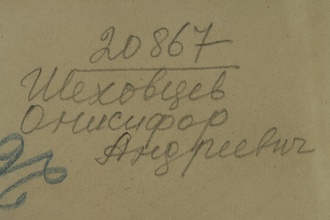 20867
Шеховцев
Онисифор
Андреевич